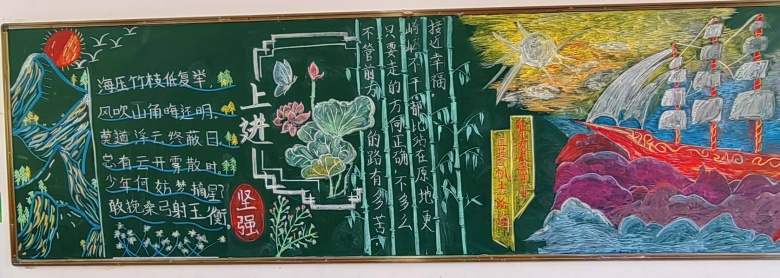 海压竹枝低复举,
风吹山角晦还明.
莫道浮云终蔽日,
总有云开雾散时.
少年何妨梦摘星,
敢挽桑弓射玉衡.
上进
坚强
不管前方的路有多苦
只要走的方向正确,不多么
崎岖不平,都比站在原地更
接近幸福.